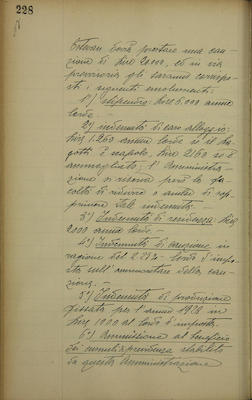 228
Estwan dovrà prestare una cau-
zione di Lire 20.000, ed in via
provvisoria gli saranno corrispo-
sti i seguenti emolumenti:
1°) stipendio: Lire 6.000 annue
lorde.
2°) indennità di caro alloggio:
Lire 1.260 annue lorde se il
è Lire 2160 se è
ammogliato; l'Amministra-
zione si riserva però la fa-
coltà di ridurre o anche di sop-
primere tale indennità.
3°) Indennità di residenza: Lire
2000 annue lorde.
4°) Indennità di cauzione in
ragione del 2.25% lordo d'impo-
sta sull'ammontare della cau-
zione.
5°) Indennità di produzione
fissata per l'anno 1928 in
Lire 1000 al lordo d'imposta.
6°) Ammissione al beneficio
di previdenza stabilito
da questa Amministrazione